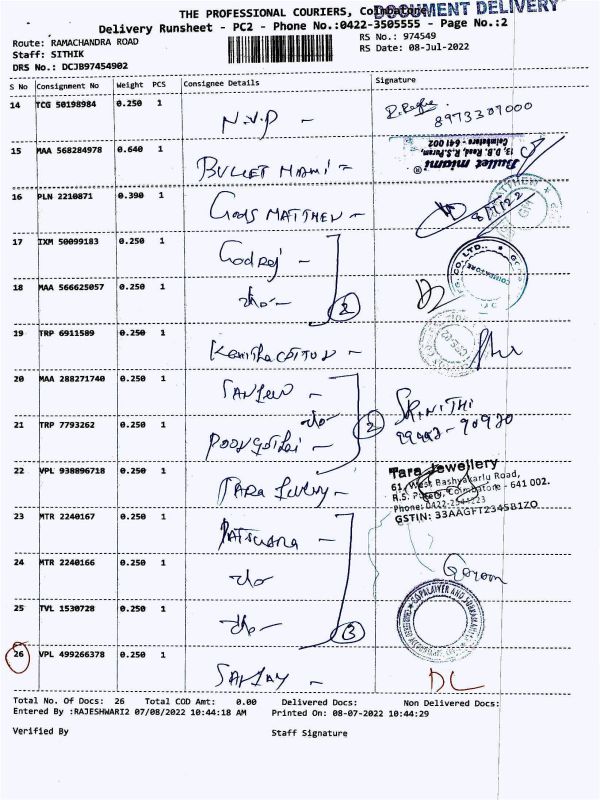 THE PROFESSIONAL COURIERS, Coimbatore
DOCUMENT DELIVERY
Delivery Runsheet - PC2 - Phone No.:0422-3505555 - Page No.:2
Route: RAMACHANDRA ROAD
RS No.: 974549
Staff: SITHIK
RS Date: 08-Jul-2022
DRS No.: DCJB97454902
S No Consignment No Weight PCS Consignee Details Signature
14 TCG 50198984 0.250 1 N.V.P - 8973307000
15 MAA 568284978 0.640 1 BULLET MIAMI - Bullet miami®
13, D.B. Road, R.S.Puram,
Coimbatore - 641 002
16 PLN 2210871 0.390 1 GODS MATTHEW - 8/7/22
17 IXM 50099183 0.250 1 Godrej -
COIMBATORE
18 MAA 566625057 0.250 1 -do- 2
19 TRP 6911589 0.250 1
20 MAA 288271740 0.250 1 -do- 2 SRINITHI
21 TRP 7793262 0.250 1
22 VPL 938896718 0.250 1 TARA - Tara Jewellery
61, West Bashyakarlu Road,
R.S. Puram, Coimbatore - 641 002.
Phone: 0422-
GSTIN: 33AAGFT2345B1ZO
23 MTR 2240167 0.250 1
24 MTR 2240166 0.250 1 -do-
25 TVL 1530728 0.250 1 -do- 3
26 VPL 499266378 0.250 1 SANJAY - DL
Total No. Of Docs: 26 Total COD Amt: 0.00 Delivered Docs: Non Delivered Docs:
Entered By :RAJESHWARI2 07/08/2022 10:44:18 AM Printed On: 08-07-2022 10:44:29
Verified By Staff Signature